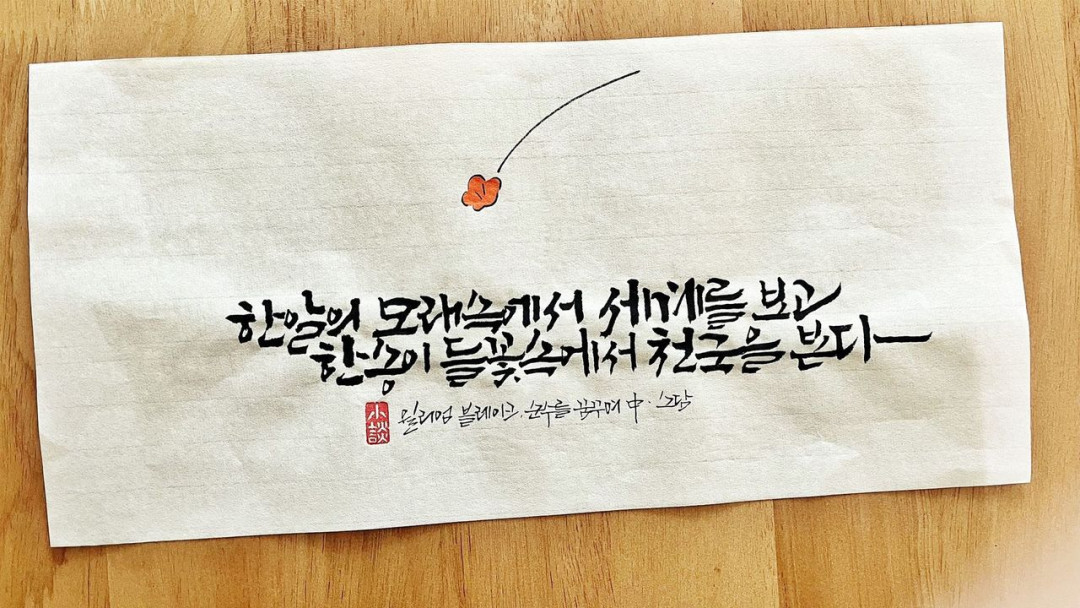 한알의 모래속에서 세계를 보고
한송이 들꽃속에서 천국을 본다
小談 윌리엄 블레이크. 순수를 꿈꾸며 中. 소담